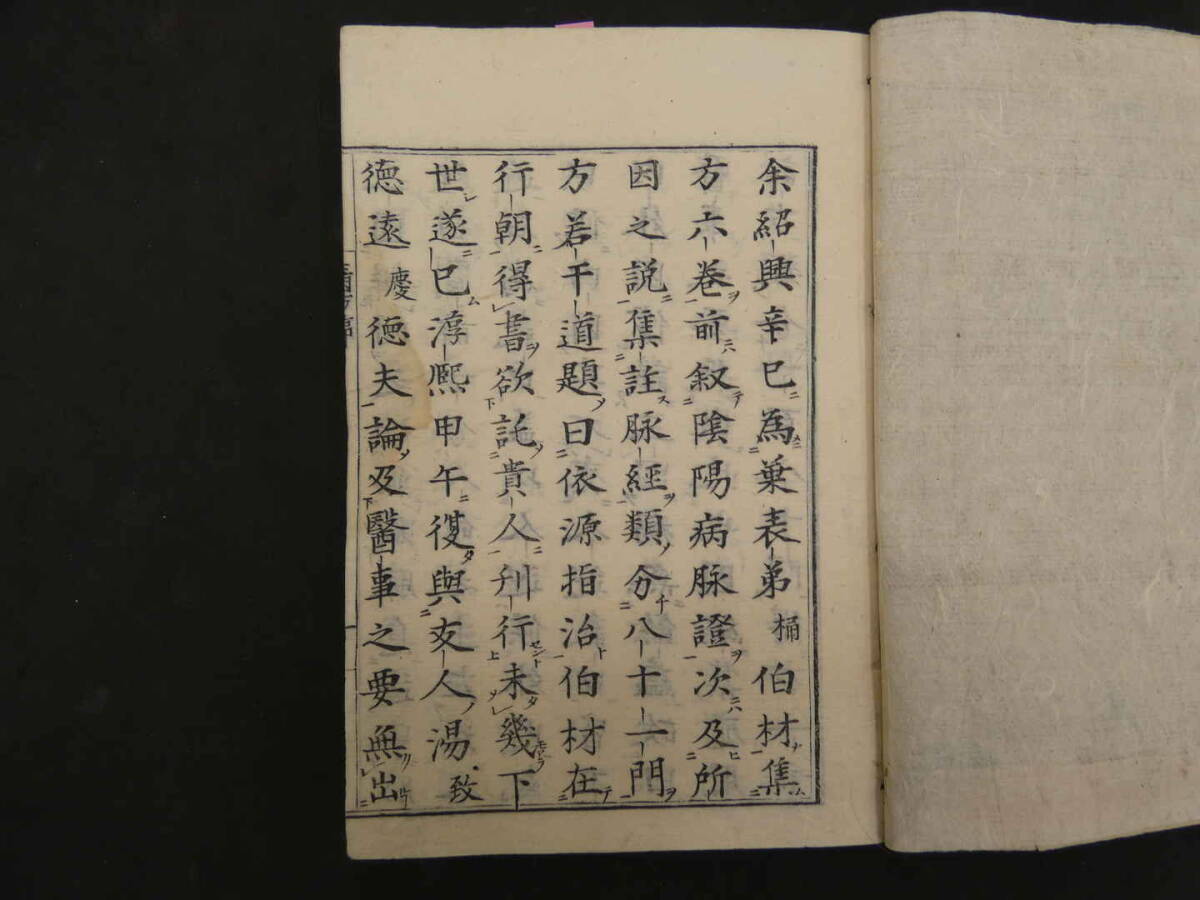 余紹興辛巳為葉表弟桶伯材集
方六卷前叙陰陽病脉證次及所
因之説集註脉經類分八十一門
方若干道題曰依源指治伯材在
行朝得書欲託貴人刋行未幾下
世遂已淳熈甲午復與友人湯致
德遠慶德夫論及醫事之要無出